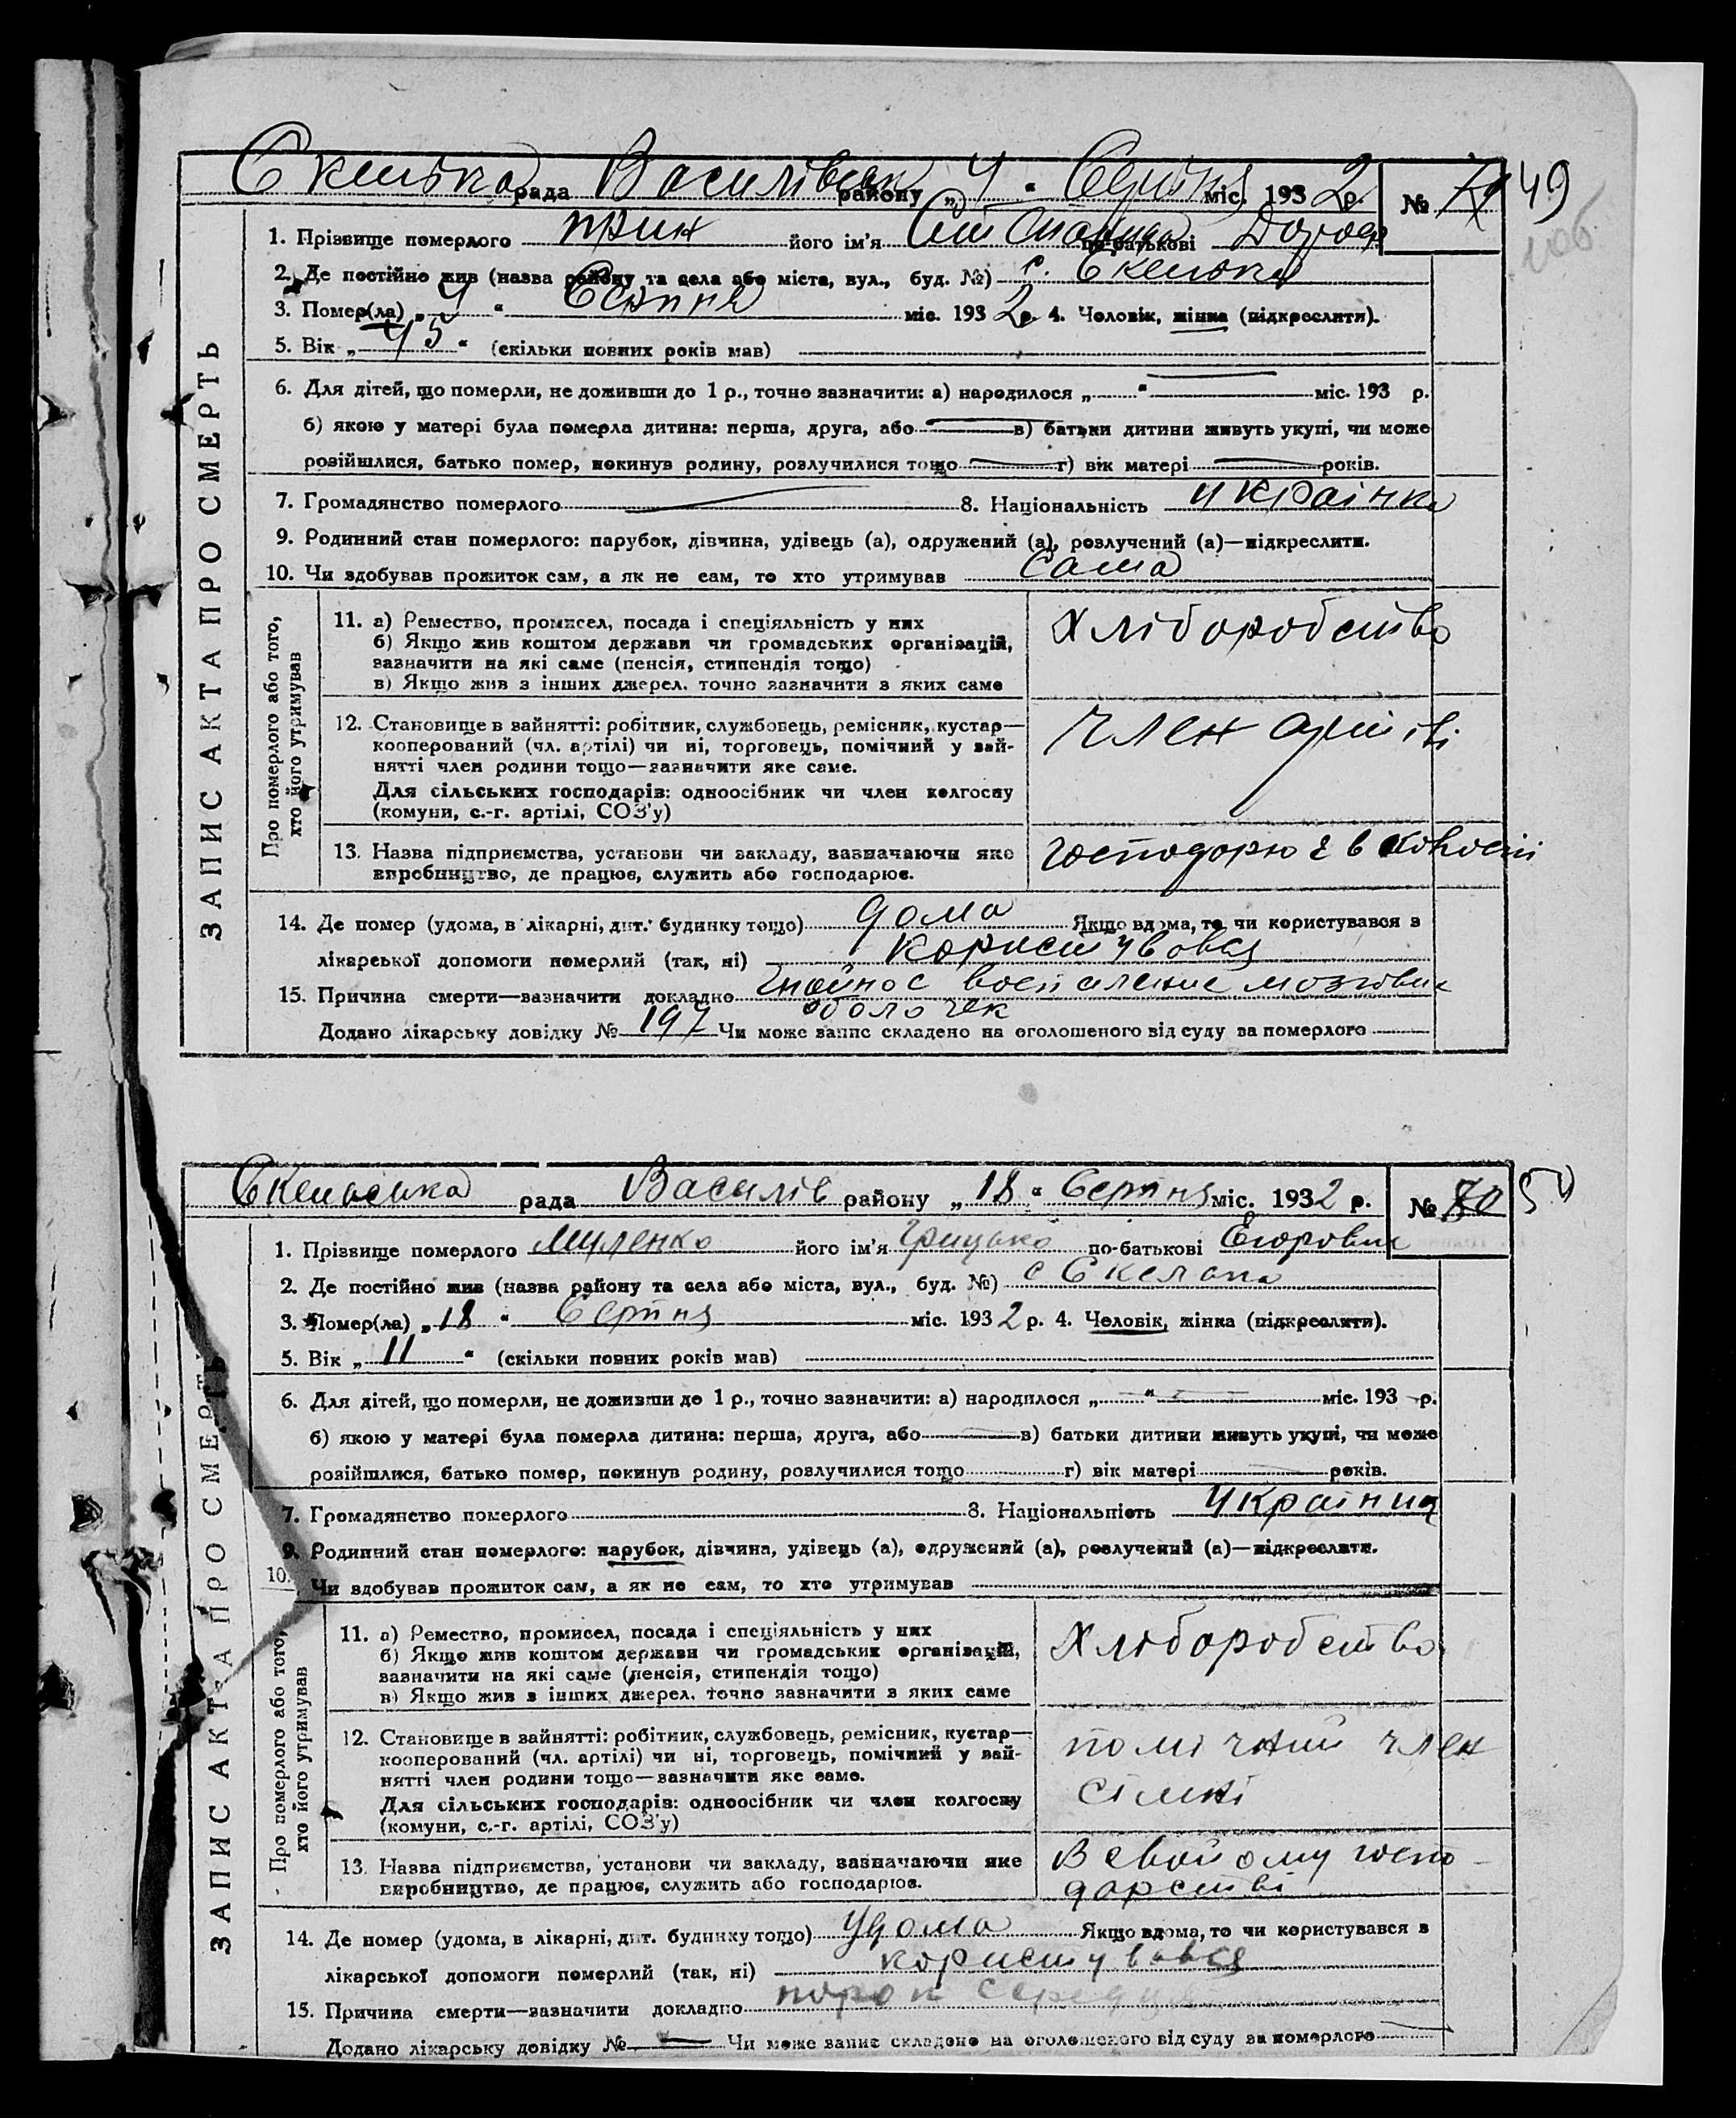 рада Василівськ району „4“ Серпня міс. 1932 р. № 49
1. Прізвище померлого його ім'я по-батькові
2. Де постійно жив (назва району та села або міста, вул., буд. №) с. Скелька
3. Помер(ла) „4“ Серпня міс. 1932 р. 4. Чоловік, жінка (підкреслити).
5. Вік „45“ (скільки повних років мав)
6. Для дітей, що померли, не доживши до 1 р., точно зазначити: а) народилося „ “ міс. 193 р.
б) якою у матері була померла дитина: перша, друга, або в) батьки дитини живуть укупі, чи може
розійшлися, батько помер, покинув родину, розлучилися тощо г) вік матері років.
7. Громадянство померлого 8. Національність українка
9. Родинний стан померлого: парубок, дівчина, удівець (а), одружений (а), розлучений (а)—підкреслити.
10. Чи здобував прожиток сам, а як не сам, то хто утримував сама
ЗАПИС АКТА ПРО СМЕРТЬ
Про померлого або того,
хто його утримував
11. а) Ремество, промисел, посада і спеціяльність у них
б) Якщо жив коштом держави чи громадських організацій,
зазначити на які саме (пенсія, стипендія тощо)
в) Якщо жив з інших джерел, точно зазначити з яких саме
Хліборобство
12. Становище в зайнятті: робітник, службовець, ремісник, кустар—
кооперований (чл. артілі) чи ні, торговець, помічний у зай-
нятті член родини тощо—зазначити яке саме.
Для сільських господарів: одноосібник чи член колгоспу
(комуни, с.-г. артілі, СОЗ'у)
член артілі
13. Назва підприємства, установи чи закладу, зазначаючи яке
виробництво, де працює, служить або господарює.
господарює в
14. Де помер (удома, в лікарні, дит. будинку тощо) дома Якщо вдома, то чи користувався з
лікарської допомоги померлий (так, ні) користувався
15. Причина смерти—зазначити докладно гнойное воспаление мозговых
оболочек
Додано лікарську довідку № 197 Чи може запис складено на оголошеного від суду за померлого
Скельська рада Василів району „18“ Серпня міс. 1932 р. № 50
1. Прізвище померлого його ім'я Грицько по-батькові Егорович
2. Де постійно жив (назва району та села або міста, вул., буд. №) с Скелька
3. Помер(ла) „18“ Серпня міс. 1932 р. 4. Чоловік, жінка (підкреслити).
5. Вік „11“ (скільки повних років мав)
6. Для дітей, що померли, не доживши до 1 р., точно зазначити: а) народилося „ “ міс. 193 р.
б) якою у матері була померла дитина: перша, друга, або в) батьки дитини живуть укупі, чи може
розійшлися, батько помер, покинув родину, розлучилися тощо г) вік матері років.
7. Громадянство померлого 8. Національність Українец
9. Родинний стан померлого: парубок, дівчина, удівець (а), одружений (а), розлучений (а)—підкреслити.
10. Чи здобував прожиток сам, а як не сам, то хто утримував
ЗАПИС АКТА ПРО СМЕРТЬ
Про померлого або того,
хто його утримував
11. а) Ремество, промисел, посада і спеціяльність у них
б) Якщо жив коштом держави чи громадських організацій,
зазначити на які саме (пенсія, стипендія тощо)
в) Якщо жив з інших джерел, точно зазначити з яких саме
Хліборобство
12. Становище в зайнятті: робітник, службовець, ремісник, кустар—
кооперований (чл. артілі) чи ні, торговець, помічний у зай-
нятті член родини тощо—зазначити яке саме.
Для сільських господарів: одноосібник чи член колгоспу
(комуни, с.-г. артілі, СОЗ'у)
помічний член
сімні
13. Назва підприємства, установи чи закладу, зазначаючи яке
виробництво, де працює, служить або господарює.
В свойому госпо-
дарстві
14. Де помер (удома, в лікарні, дит. будинку тощо) Удома Якщо вдома, то чи користувався з
лікарської допомоги померлий (так, ні) користувався
15. Причина смерти—зазначити докладно порок
Додано лікарську довідку № Чи може запис складено на оголошеного від суду за померлого